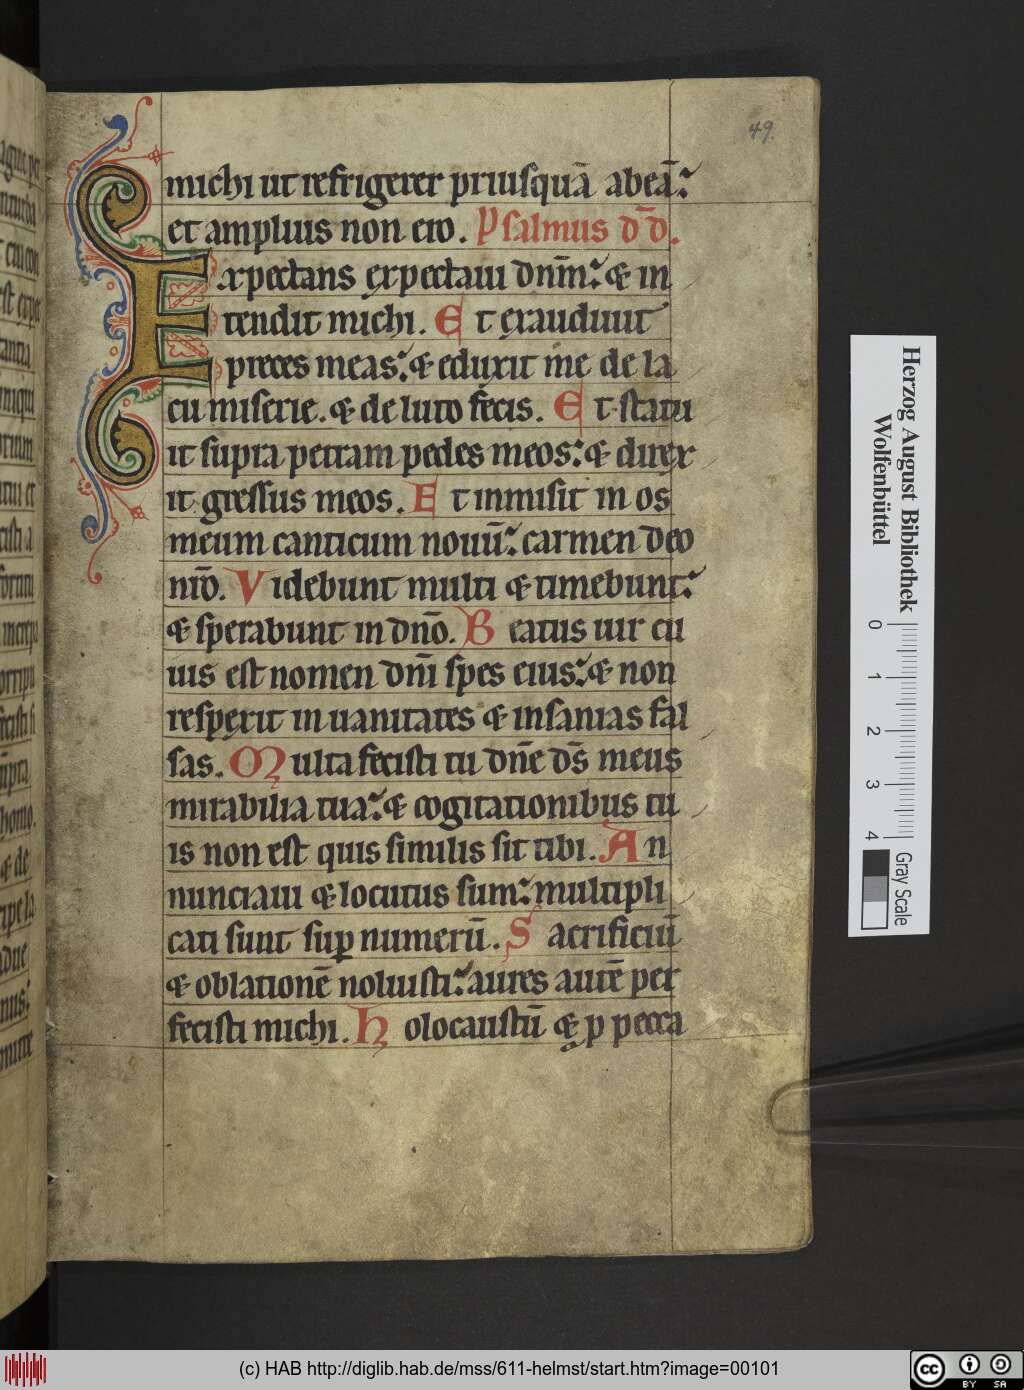 49
michi ut refrigerer priusquā abeā:
et amplius non ero. Psalmus dd̄.
Expectans expectaui dnm̄: & in
tendit michi. Et exaudiuit
preces meas: & eduxit me de la
cu miserie. & de luto fecis. Et statu
it supra petram pedes meos: & direx
it gressus meos. Et inmisit in os
meum canticum nouū: carmen deo
nrō. Videbunt multi & timebunt:
& sperabunt in dnō. Beatus uir cu
ius est nomen dnī spes eius: & non
respexit in uanitates & insanias fal
sas. Multa fecisti tu dnē ds̄ meus
mirabilia tua: & cogitationibus tu
is non est quis similis sit tibi. An
nunciaui & locutus sum: multipli
cati sunt sup numerū. Sacrificiū
& oblationē noluisti: aures autē per
fecisti michi. Holocaustū & p pecca
Herzog August Bibliothek
Wolfenbüttel
0 1 2 3 4
Gray Scale
(c) HAB http://diglib.hab.de/mss/611-helmst/start.htm?image=00101
cc BY SA